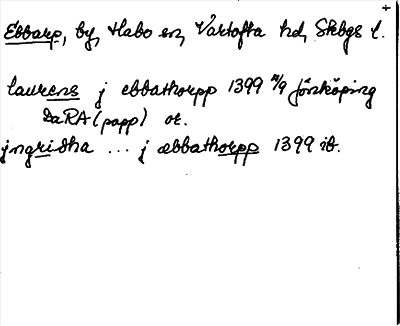 Ebbarp, by, Habo sn, Vartofta hd, Skbgs l.
laurens j ebbathorpp 1399 /9 Jönköping
DaRA (papp) or.
jngridha ... j æbbathorpp 1399 ib.